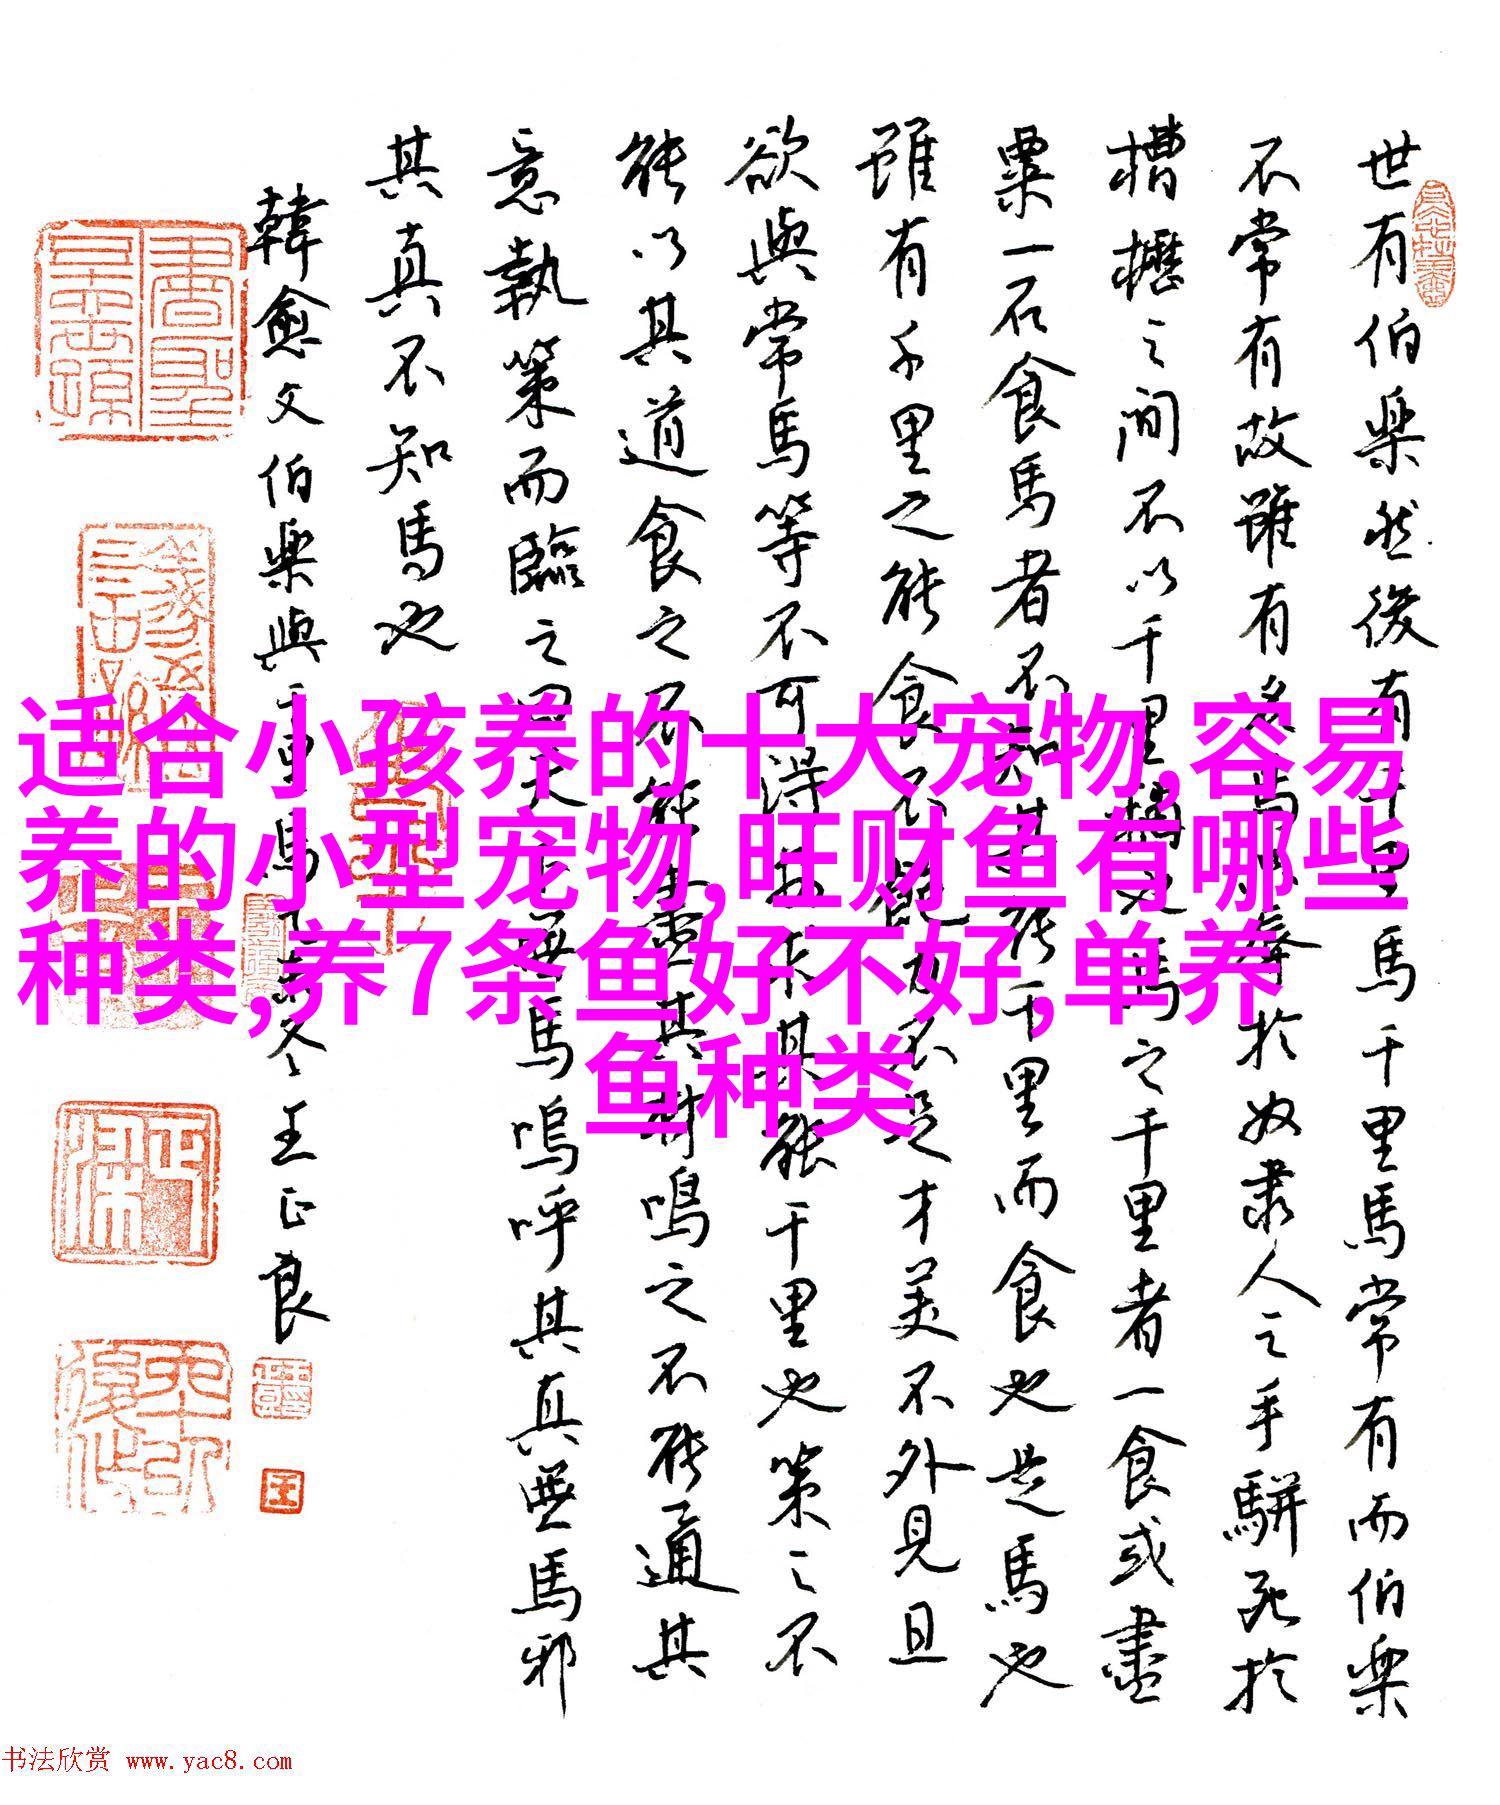 世有伯樂然後有千里馬千里馬常有而伯樂
不常有故雖有名馬辱於奴隶人之手駢死於
槽櫪之間不以千里稱也馬之千里者一食或盡
粟一石食馬者不知其能千里而食也是馬也
雖有千里之能食不飽力不足才美不外見且
欲與常馬等不可得安求其能千里也策之不
能以其道食之不能盡其材鳴之不能通其
意執策而臨之曰天下無馬嗚呼其真無馬邪
其真不知馬也
韓愈文伯樂與千里馬冬王正良
适合小孩养的十大宠物,容易
养的小型宠物,旺财鱼有哪些
种类,养7条鱼好不好,单养
鱼种类
书法欣赏 www.yac8.com